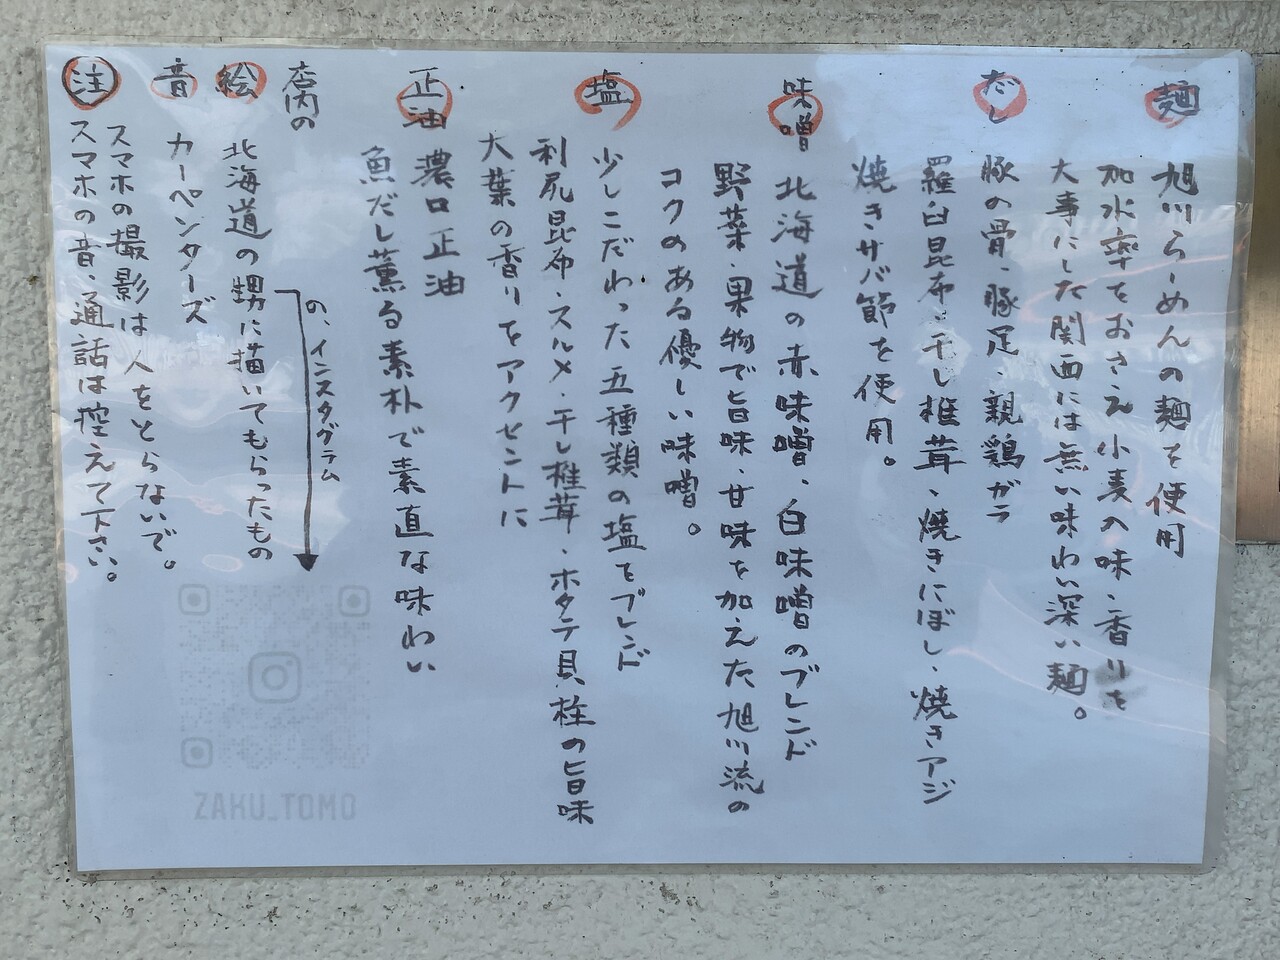 麺
旭川らーめんの麺を使用
加水率をおさえ小麦の味・香りを
大事にした関西には無い味わい深い麺。
だし
豚の骨、豚足、親鶏ガラ
羅臼昆布・干し椎茸・焼きにぼし、焼きアジ
焼きサバ節を使用。
味噌
北海道の赤味噌、白味噌のブレンド
野菜・果物で旨味、甘味を加えた旭川流の
コクのある優しい味噌。
塩
少しこだわった五種類の塩をブレンド
利尻昆布・スルメ・干し椎茸・ホタテ貝柱の旨味
大葉の香りをアクセントに
正油
濃口正油
魚だし薫る素朴で素直な味わい
店内の
絵
北海道の甥に描いてもらったもの
の、インスタグラム
音
カーペンターズ
注
スマホの撮影は人をとらないで。
スマホの音、通話は控えて下さい。
ZAKU_TOMO